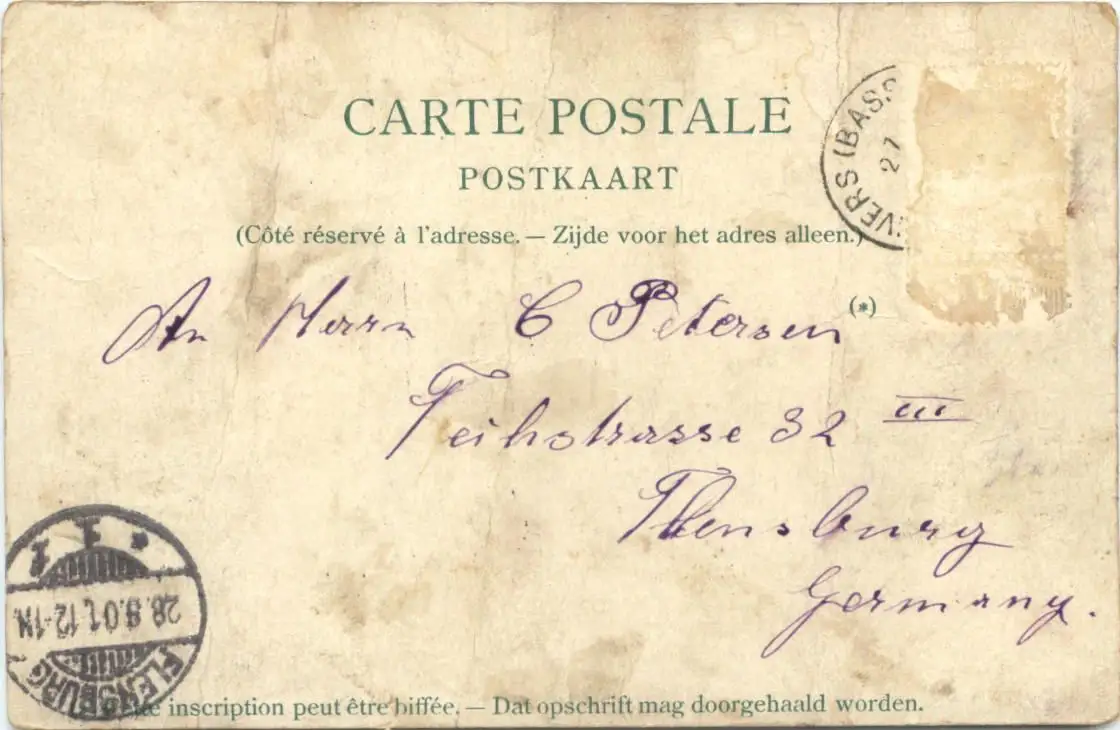 CARTE POSTALE
POSTKAART
(Côté réservé à l'adresse. — Zijde voor het adres alleen.)
VERS (BASS
27
(*)
An Herrn C Petersen
strasse 32 III
Flensburg
Germany.
28.8.01. 12-1N.
FLENSBURG
inscription peut être biffée. — Dat opschrift mag doorgehaald worden.